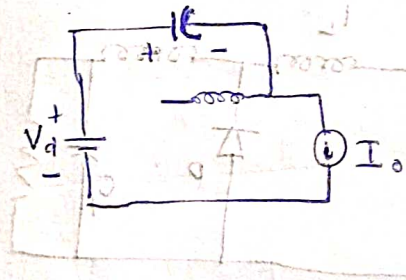 C
+ -
+
Vd
-
i Io